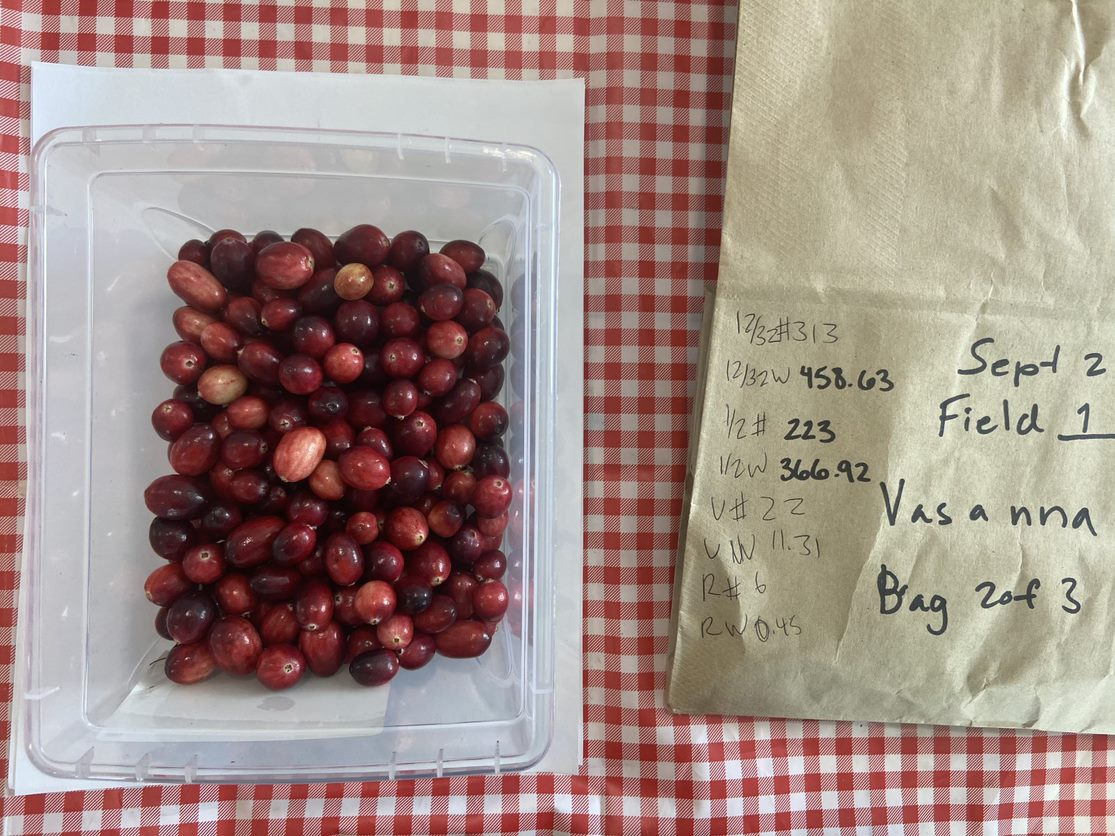 12/32#313
12/32W 458.63
1/2# 223
1/2W 366.92
U# 22
UW 11.31
R# 6
RW 0.45
Sept 2
Field 1
Vasanna
Bag 2of 3